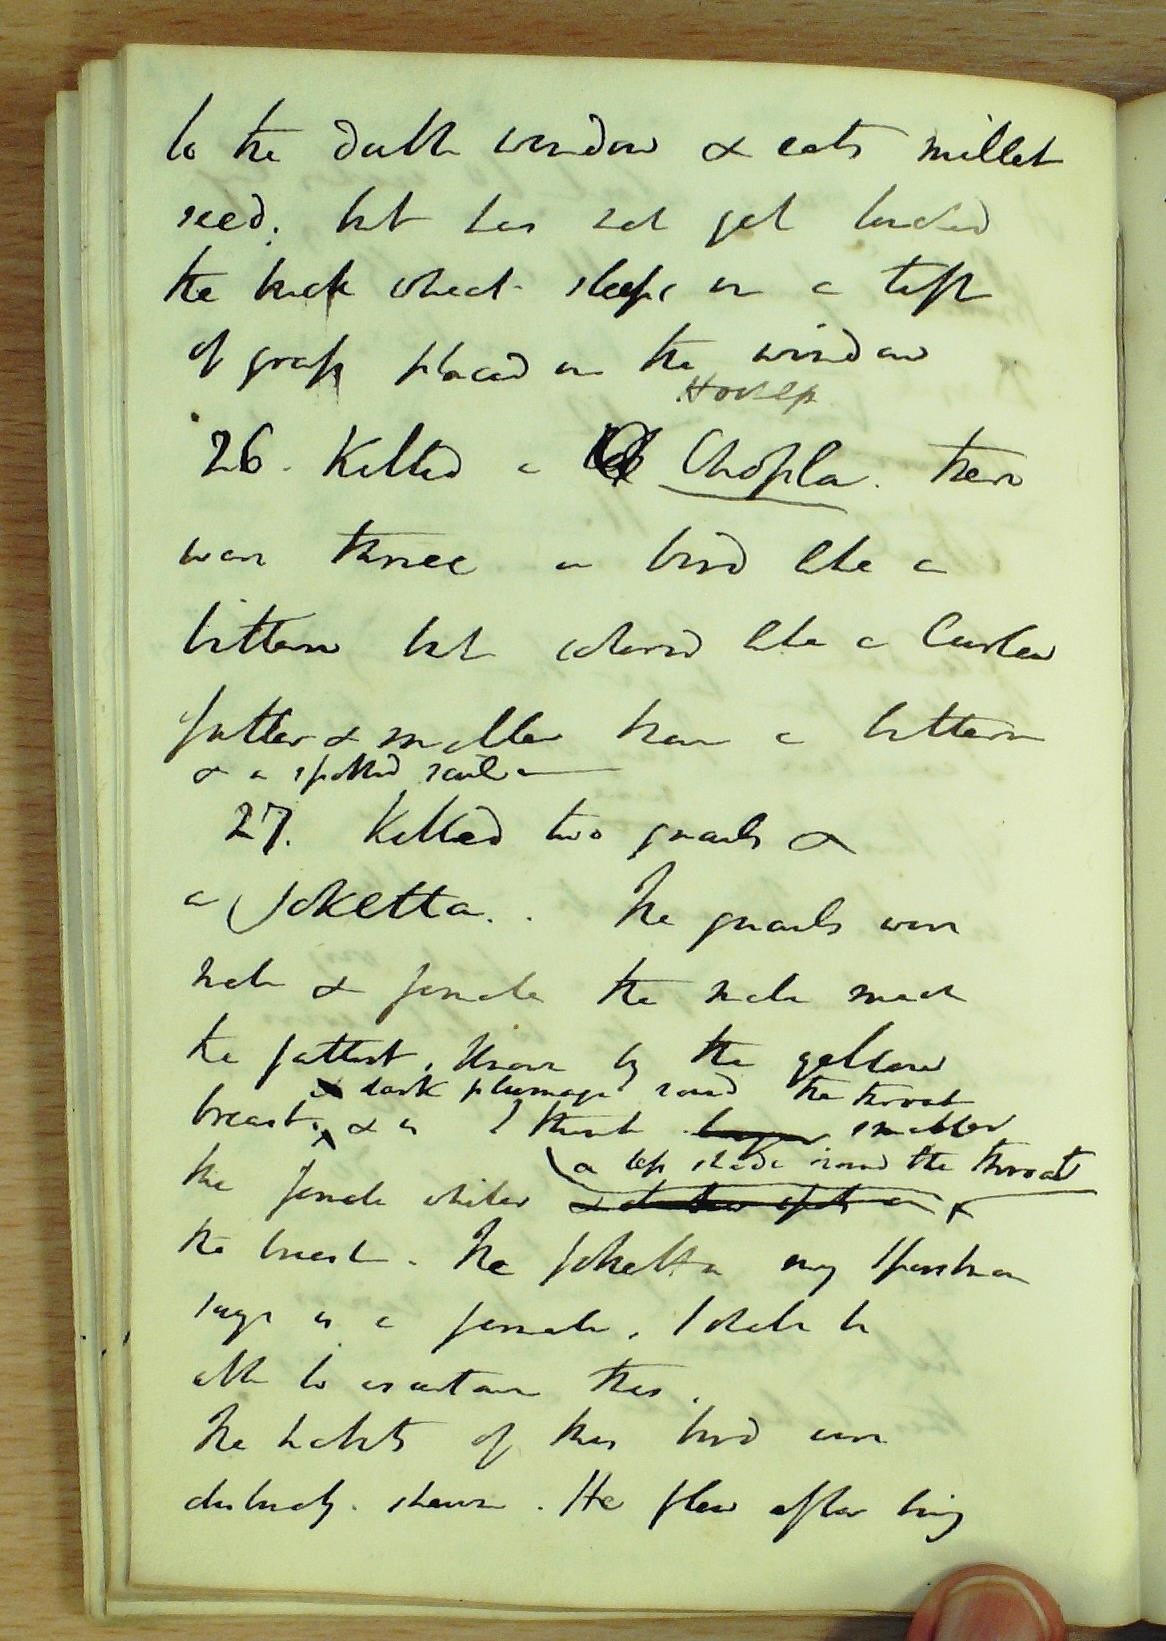 to the double window & eats millet
seed, but has not yet touched
the buck wheat. sleeps in a tuft
of grass placed in the window
26. Killed a Chapla. there
were three a bird like a
bittern but colored like a Curlew
fatter & smaller than a bittern
& a spotted
27. Killed two quails &
a Joketta. The quails were
male & female the male much
the fattest, known by the yellow
& dark plumage round the throat
breast, & is I think larger smaller
a less shade round the throat
the female whiter &
the breast. The Joketta my
says is a female, I shall be
able to ascertain this.
The habits of this bird were
distinctly shewn. He flew after being